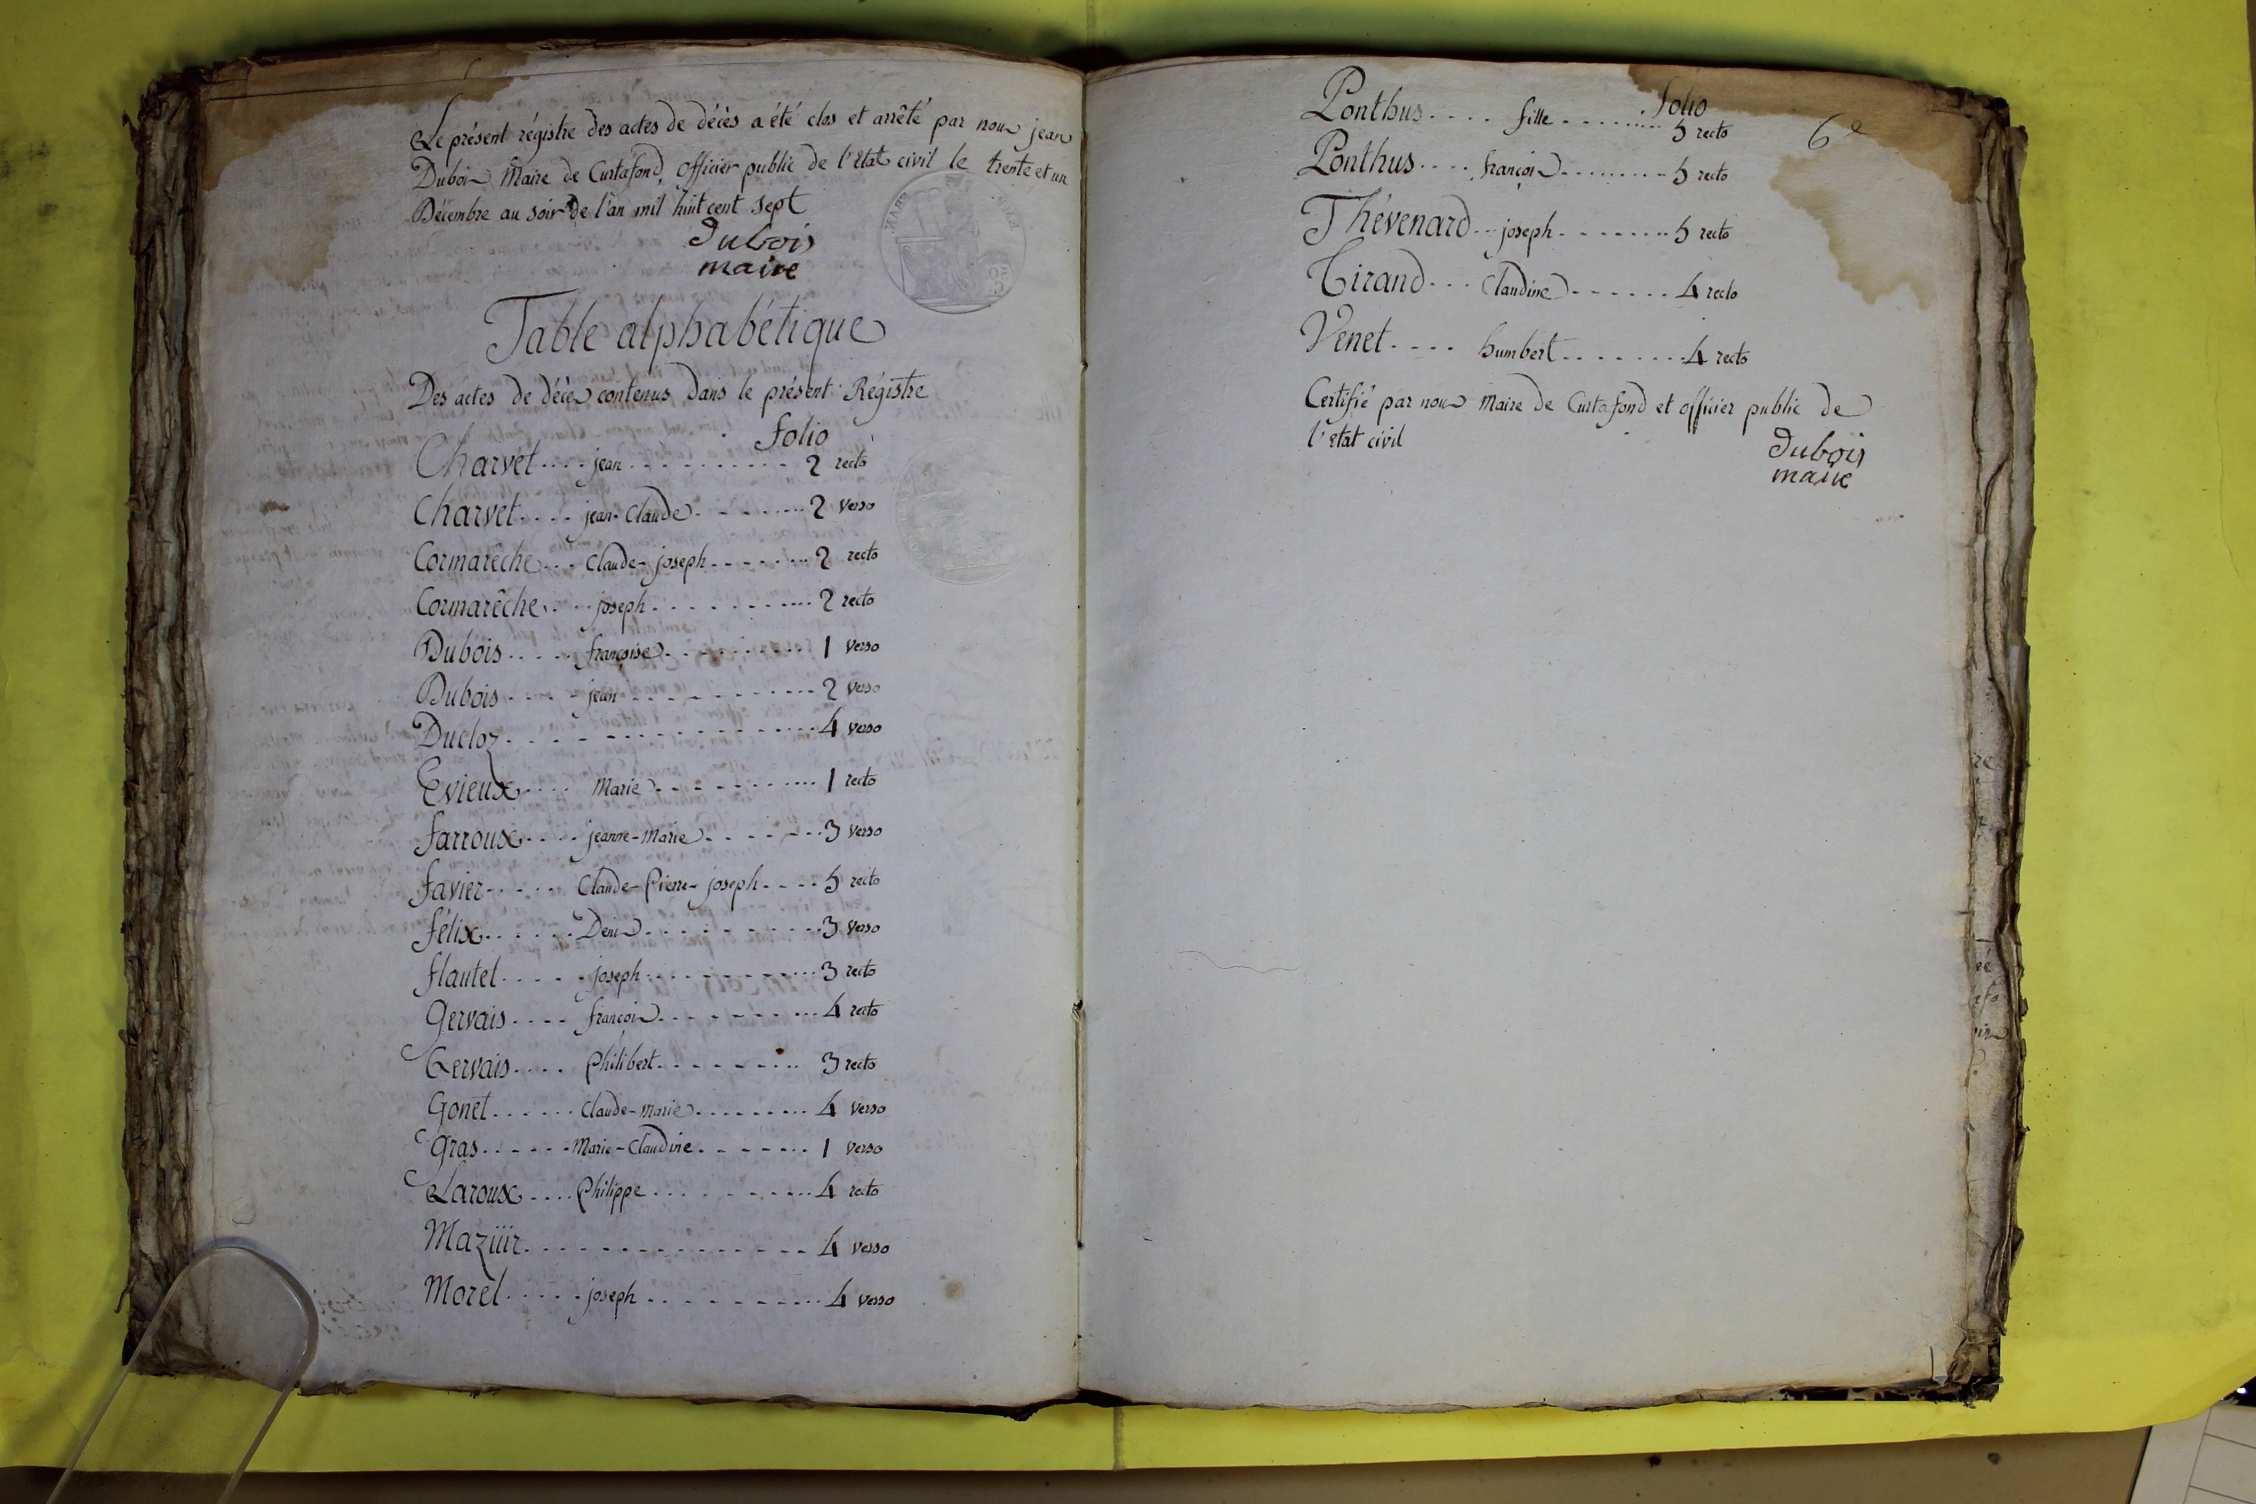 Le présent régistre des actes de décès a été clos et arrêté par nous jean
Dubois Maire de Curtafond, officier public de l'Etat civil le trente et un
Décembre au soir de l'an mil huit cent sept
Dubois
maire
Table alphabétique
Des actes de décès contenus dans le présent Régistre
folio
Charvet .... jean .......... 2 recto
Charvet .... jean-Claude ........ 2 verso
Cormarêche ... Claude-joseph ........ 2 recto
Cormarêche .... joseph .......... 2 recto
Dubois ..... françoise ........ 1 verso
Dubois ..... jean .......... 2 verso
Ducloz .............. 4 verso
Evieux .... Marie ......... 1 recto
farroux .... jeanne-Marie ....... 3 verso
favier ..... Claude-Pierre-joseph .... 5 recto
félix ...... Denis .......... 3 verso
flautet ..... joseph ......... 3 recto
gervais .... françois ......... 4 recto
Gervais .... Philibert ......... 3 recto
Gonet ...... Claude-Marie ......... 4 verso
gras ...... Marie-Claudine ....... 1 verso
Laroux .... Philippe ......... 4 recto
Maziiir .............. 4 verso
Morel ..... joseph .......... 4 verso
6e
folio
Ponthus .... fille ........ 5 recto
Ponthus .... françois ........ 5 recto
Thévenard .. joseph ........ 5 recto
Tirand ... Claudine ....... 4 recto
Venet .... humbert ........ 4 recto
Certifié par nous Maire de Curtafond et officier public de
l'etat civil
Dubois
maire